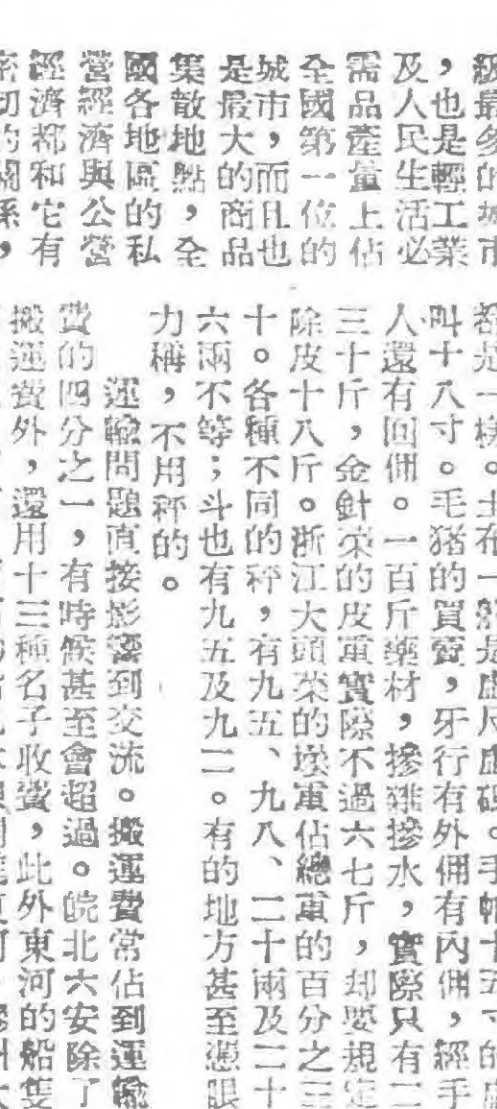 級最多的城市
，也是輕工業
及人民生活必
需品產量上佔
全國第一位的
城市，而且也
是最大的商品
集散地點，全
國各地區的私
營經濟與公營
經濟都和它有
密切的關係，
都是一樣。土布一般是虛尺虛碼。手帕十五寸的
叫十八寸。毛猪的買賣，牙行有外佣有內佣，經手
人還有回佣。一百斤藥材，摻雜摻水，實際只有二
三十斤，金針菜的皮重實際不過六七斤，却要規定
除皮十八斤。浙江大頭菜的壜重佔總重的百分之三
十。各種不同的秤，有九五、九八、二十兩及二十
六兩不等；斗也有九五及九二。有的地方甚至憑眼
力稱，不用秤的。
運輸問題直接影響到交流。搬運費常佔到運輸
費的四分之一，有時候甚至會超過。皖北六安除了
搬運費外，還用十三種名子收費，此外東河的船隻